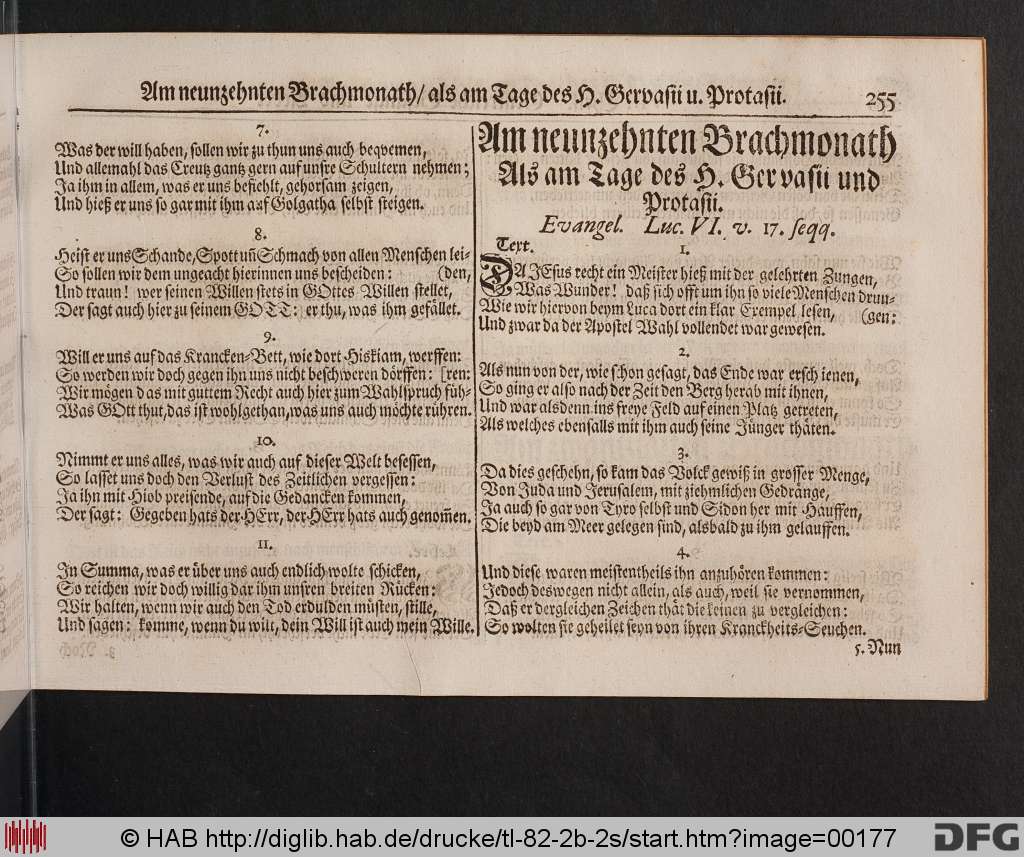 Am neunzehnten Brachmonath/ als am Tage des H. Gervasii u. Protasii. 255
7.
Was der will haben, sollen wir zu thun uns auch beqvemen,
Und allemahl das Creutz gantz gern auf unsre Schultern nehmen;
Ja ihm in allem, was er uns befiehlt, gehorsam zeigen,
Und hieß er uns so gar mit ihm auf Golgatha selbst steigen.
8.
Heist er uns Schande, Spott uñ Schmach von allen Menschen lei-
So sollen wir dem ungeacht hierinnen uns bescheiden: (den,
Und traun! wer seinen Willen stets in GOttes Willen stellet,
Der sagt auch hier zu seinem GOTT: er thu, was ihm gefället.
9.
Will er uns auf das Krancken-Bett, wie dort Hiskiam, werffen:
So werden wir doch gegen ihn uns nicht beschweren dörffen: [ren:
Wir mögen das mit guttem Recht auch hier zum Wahlspruch füh-
Was GOtt thut, das ist wohlgethan, was uns auch möchte rühren.
10.
Nimmt er uns alles, was wir auch auf dieser Welt besessen,
So lasset uns doch den Verlust des Zeitlichen vergessen:
Ja ihn mit Hiob preisende, auf die Gedancken kommen,
Der sagt: Gegeben hats der HErr, der HErr hats auch genom̃en.
11.
In Summa, was er über uns auch endlich wolte schicken,
So reichen wir doch willig dar ihm unsren breiten Rücken:
Wir halten, wenn wir auch den Tod erdulden müsten, stille,
Und sagen: komme, wenn du wilt, dein Will ist auch mein Wille.
Am neunzehnten Brachmonath
Als am Tage des H. Gervasii und
Protasii.
Evangel. Luc. VI. v. 17. seqq.
Text.
1.
DA JEsus recht ein Meister hieß mit der gelehrten Zungen,
Was Wunder! daß sich offt um ihn so viele Menschen drun-
Wie wir hiervon beym Luca dort ein klar Exempel lesen, (gen:
Und zwar da der Apostel Wahl vollendet war gewesen.
2.
Als nun von der, wie schon gesagt, das Ende war ersch ienen,
So ging er also nach der Zeit den Berg herab mit ihnen,
Und war alsdenn ins freye Feld auf einen Platz getreten,
Als welches ebenfalls mit ihm auch seine Jünger thäten.
3.
Da dies geschehn, so kam das Volck gewiß in grosser Menge,
Von Juda und Jerusalem, mit ziehmlichen Gedränge,
Ja auch so gar von Tyro selbst und Sidon her mit Hauffen,
Die beyd am Meer gelegen sind, alsbald zu ihm gelauffen.
4.
Und diese waren meistentheils ihn anzuhören kommen:
Jedoch deswegen nicht allein, als auch, weil sie vernommen,
Daß er dergleichen Zeichen thät die keinen zu vergleichen:
So wolten sie geheilet seyn von ihren Kranckheits-Seuchen.
5. Nun
© HAB http://diglib.hab.de/drucke/tl-82-2b-2s/start.htm?image=00177
DFG